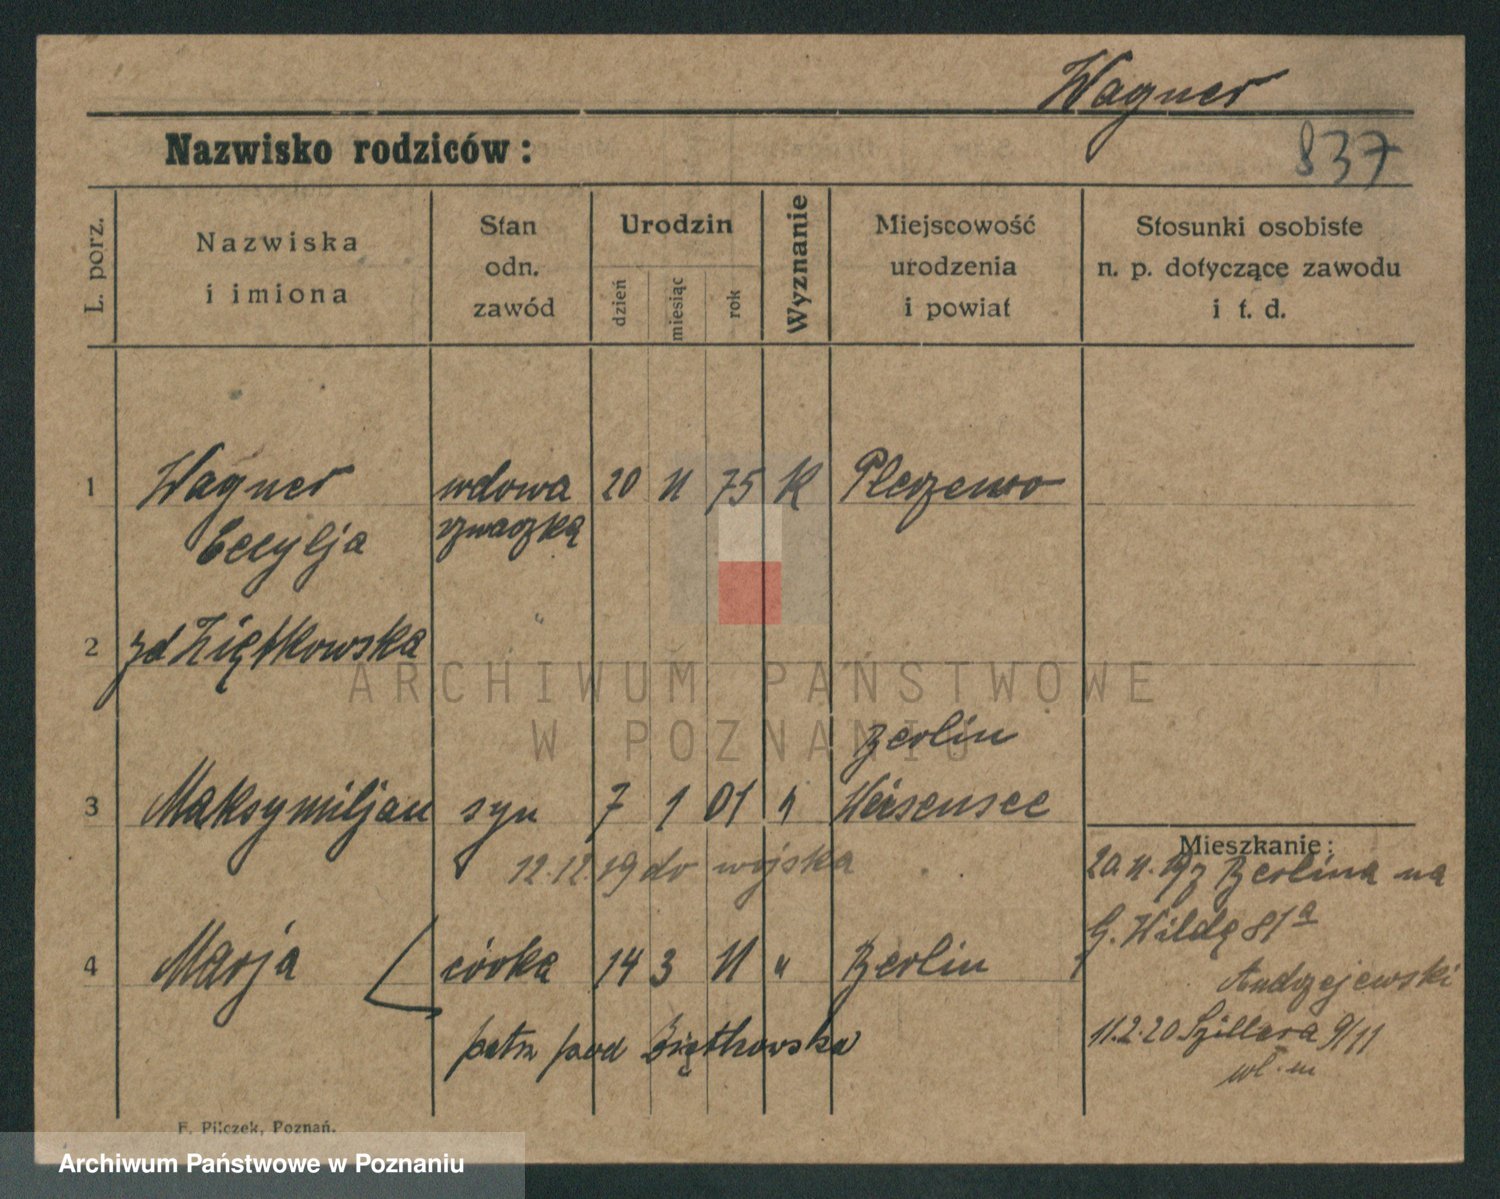 Wagner
837
Nazwisko rodziców:
L. porz.
Nazwiska
i imiona
Stan
odn.
zawód
Urodzin
dzień
miesiąc
rok
Wyznanie
Miejscowość
urodzenia
i powiat
Stosunki osobiste
n. p. dotyczące zawodu
i t. d.
1 Wagner wdowa 20 11 75 K Pleszewo
Cecylja szwaczka
2 zd Ziętkowska
Berlin
3 Maksymiljan syn 7 1 01 " Weisensee
12.12.19 do wojska
4 Marja córka 14 3 11 " Berlin
patrz pod Ziętkowska
Mieszkanie:
20.11.19 z Berlina na
G. Wildę 81a
Andrzejewski
11.2.20 Szillera 9/11
wł. m
F. Pilczek, Poznań.
ARCHIWUM PAŃSTWOWE
W POZNANIU
Archiwum Państwowe w Poznaniu